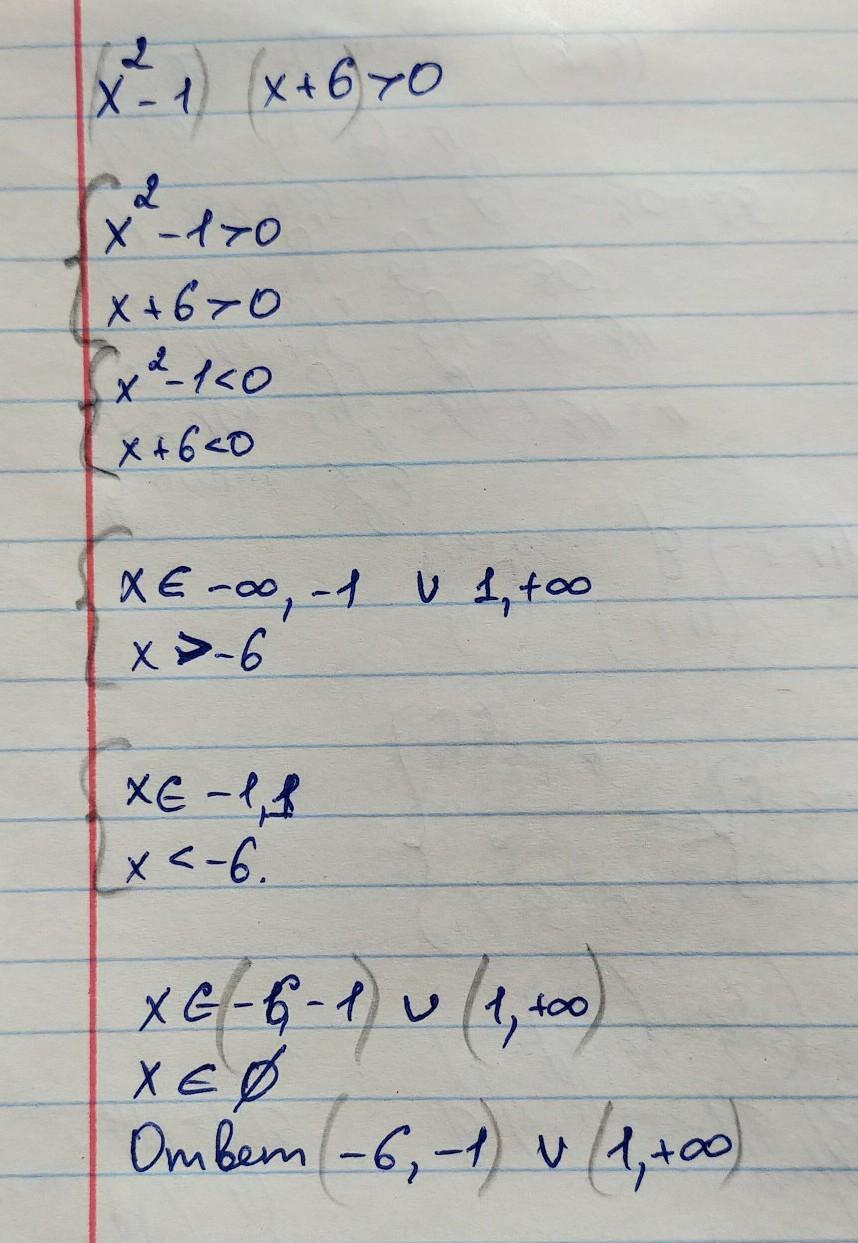 (x²-1) (x+6)>0
x²-1>0
x+6>0
x²-1<0
x+6<0
x∈ -∞, -1 ∪ 1, +∞
x > -6
x∈ -1,1
x < -6.
x∈(-6,-1) ∪ (1, +∞)
x∈ ∅
Ответ (-6, -1) ∪ (1, +∞)